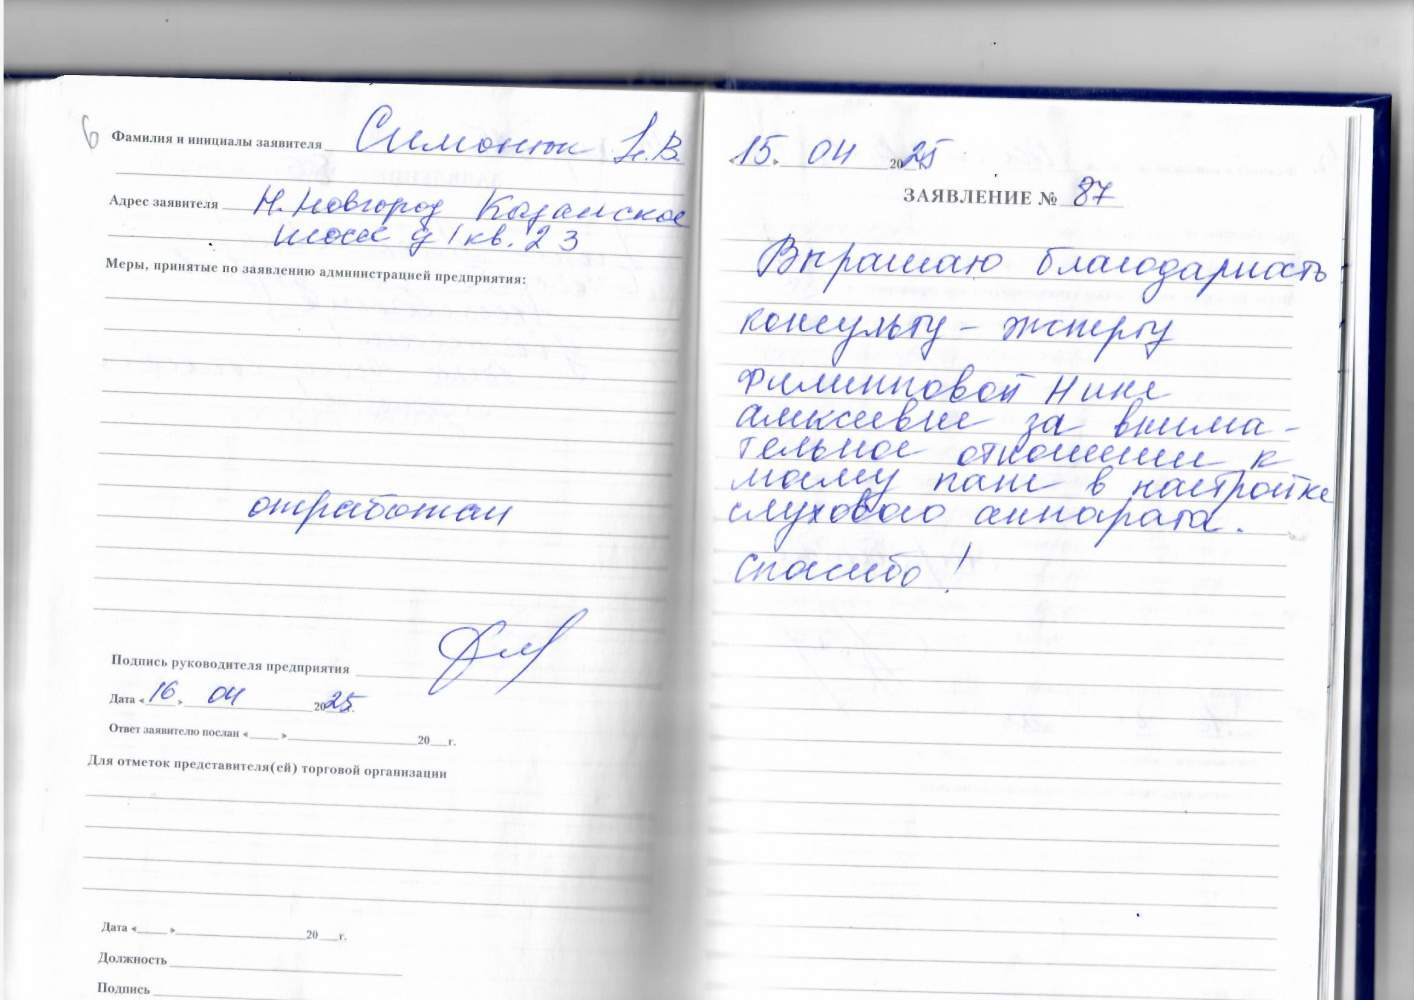 6
Фамилия и инициалы заявителя Симонюк Н.В.
Адрес заявителя Н.Новгород Казанское
шоссе д 1 кв. 23
Меры, принятые по заявлению администрацией предприятия:
отработан
Подпись руководителя предприятия
Дата « 16 » 04 2025г.
Ответ заявителю послан « » 20 г.
Для отметок представителя(ей) торговой организации
Дата « » 20 г.
Должность
Подпись
«15» 04 2025
ЗАЯВЛЕНИЕ № 87
Выражаю благодарность
консульту - эксперту
Филипповой Нине
Алексевне за внима-
тельное отношение к
моему папе в настройке
слухового аппарата.
Спасибо!